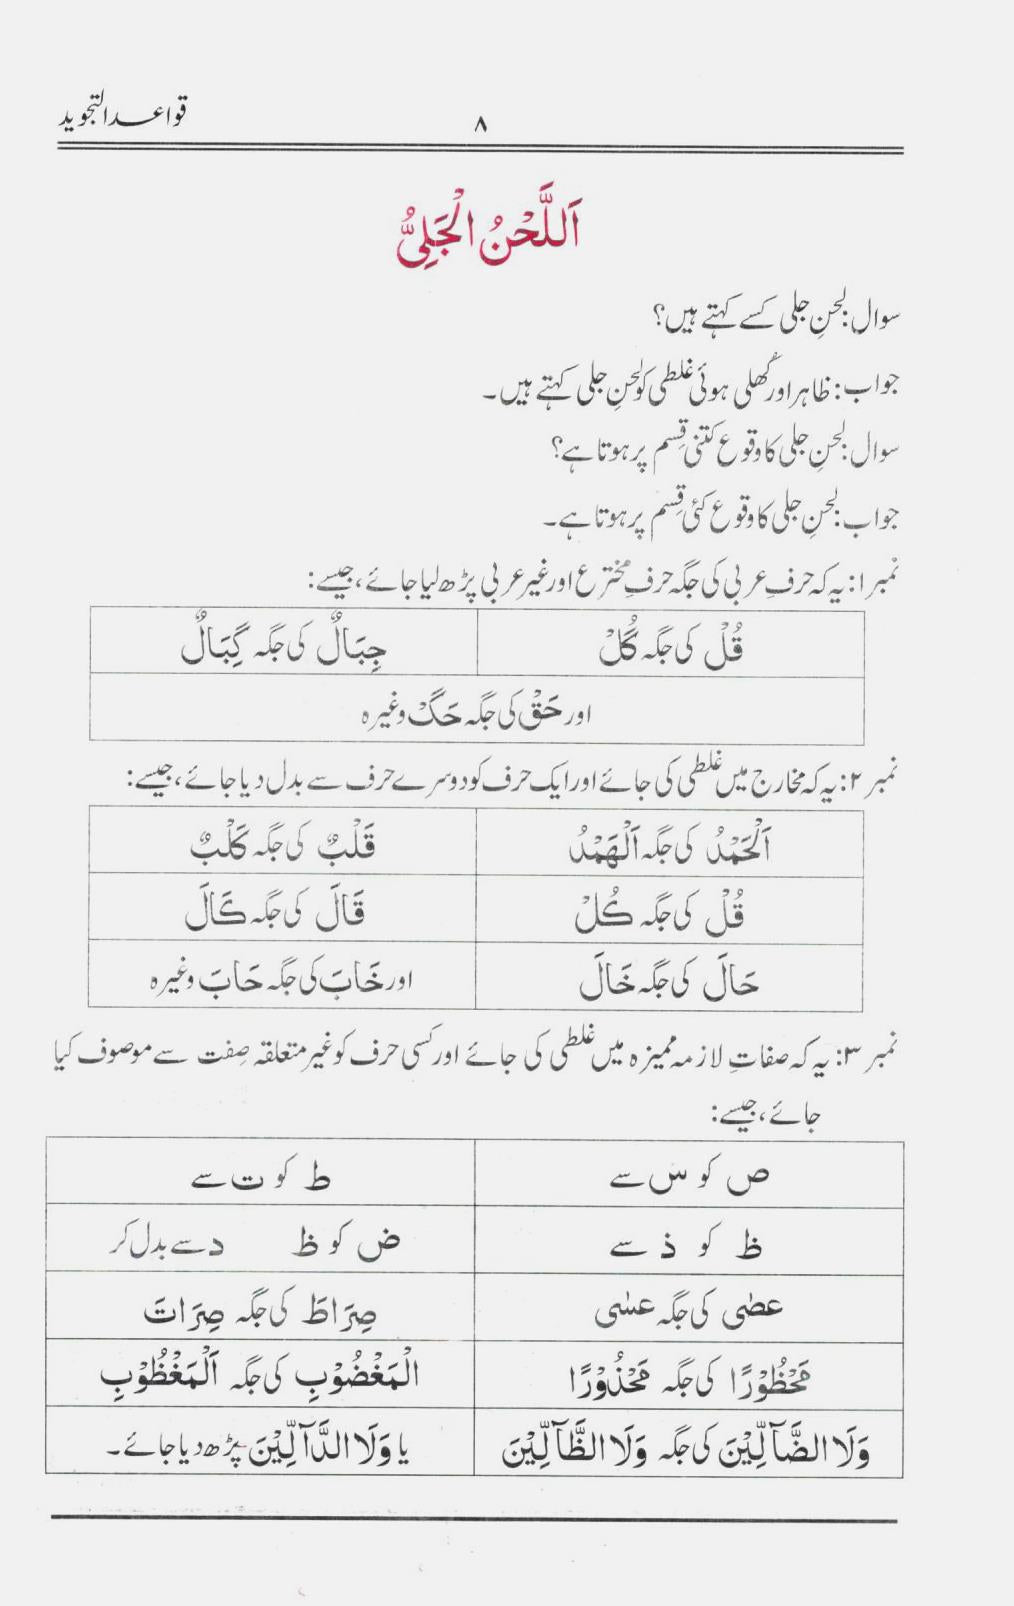 قواعد التجوید
۸
اَللَّحْنُ الْجَلِیُّ
سوال: لحنِ جلی کسے کہتے ہیں؟
جواب: ظاہر اور کُھلی ہوئی غلطی کو لحنِ جلی کہتے ہیں۔
سوال: لحنِ جلی کا وقوع کتنی قِسم پر ہوتا ہے؟
جواب: لحنِ جلی کا وقوع کئی قِسم پر ہوتا ہے۔
نمبر ۱: یہ کہ حرفِ عربی کی جگہ حرفِ مخترع اور غیر عربی پڑھ لیا جائے، جیسے:
قُلْ کی جگہ گُلْ
جِبَالٌ کی جگہ گِبَالٌ
اور حَقْ کی جگہ حَگْ وغیرہ
نمبر ۲: یہ کہ مخارج میں غلطی کی جائے اور ایک حرف کو دوسرے حرف سے بدل دیا جائے، جیسے:
اَلْحَمْدُ کی جگہ اَلْهَمْدُ
قَلْبٌ کی جگہ کَلْبٌ
قُلْ کی جگہ کُلْ
قَالَ کی جگہ کَالَ
حَالَ کی جگہ خَالَ
اور خَابَ کی جگہ حَابَ وغیرہ
نمبر ۳: یہ کہ صفاتِ لازمہ ممیزہ میں غلطی کی جائے اور کسی حرف کو غیر متعلقہ صِفت سے موصوف کیا
جائے، جیسے:
ص کو س سے
ط کو ت سے
ظ کو ذ سے
ض کو ظ د سے بدل کر
عصٰی کی جگہ عسٰی
صِرَاطَ کی جگہ صِرَاتَ
مَحْظُوْرًا کی جگہ مَحْذُوْرًا
الْمَغْضُوْبِ کی جگہ اَلْمَغْظُوْبِ
وَلَا الضَّآلِّیْنَ کی جگہ وَلَا الظَّآلِّیْنَ
یا وَلَا الدَّآلِّیْنَ پڑھ دیا جائے۔